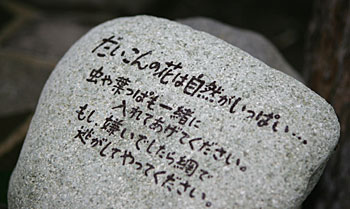 だいこんの花は自然がいっぱい…
虫や葉っぱも一緒に
入れてあげてください。
もし、嫌いでしたら網で
逃がしてやってください。